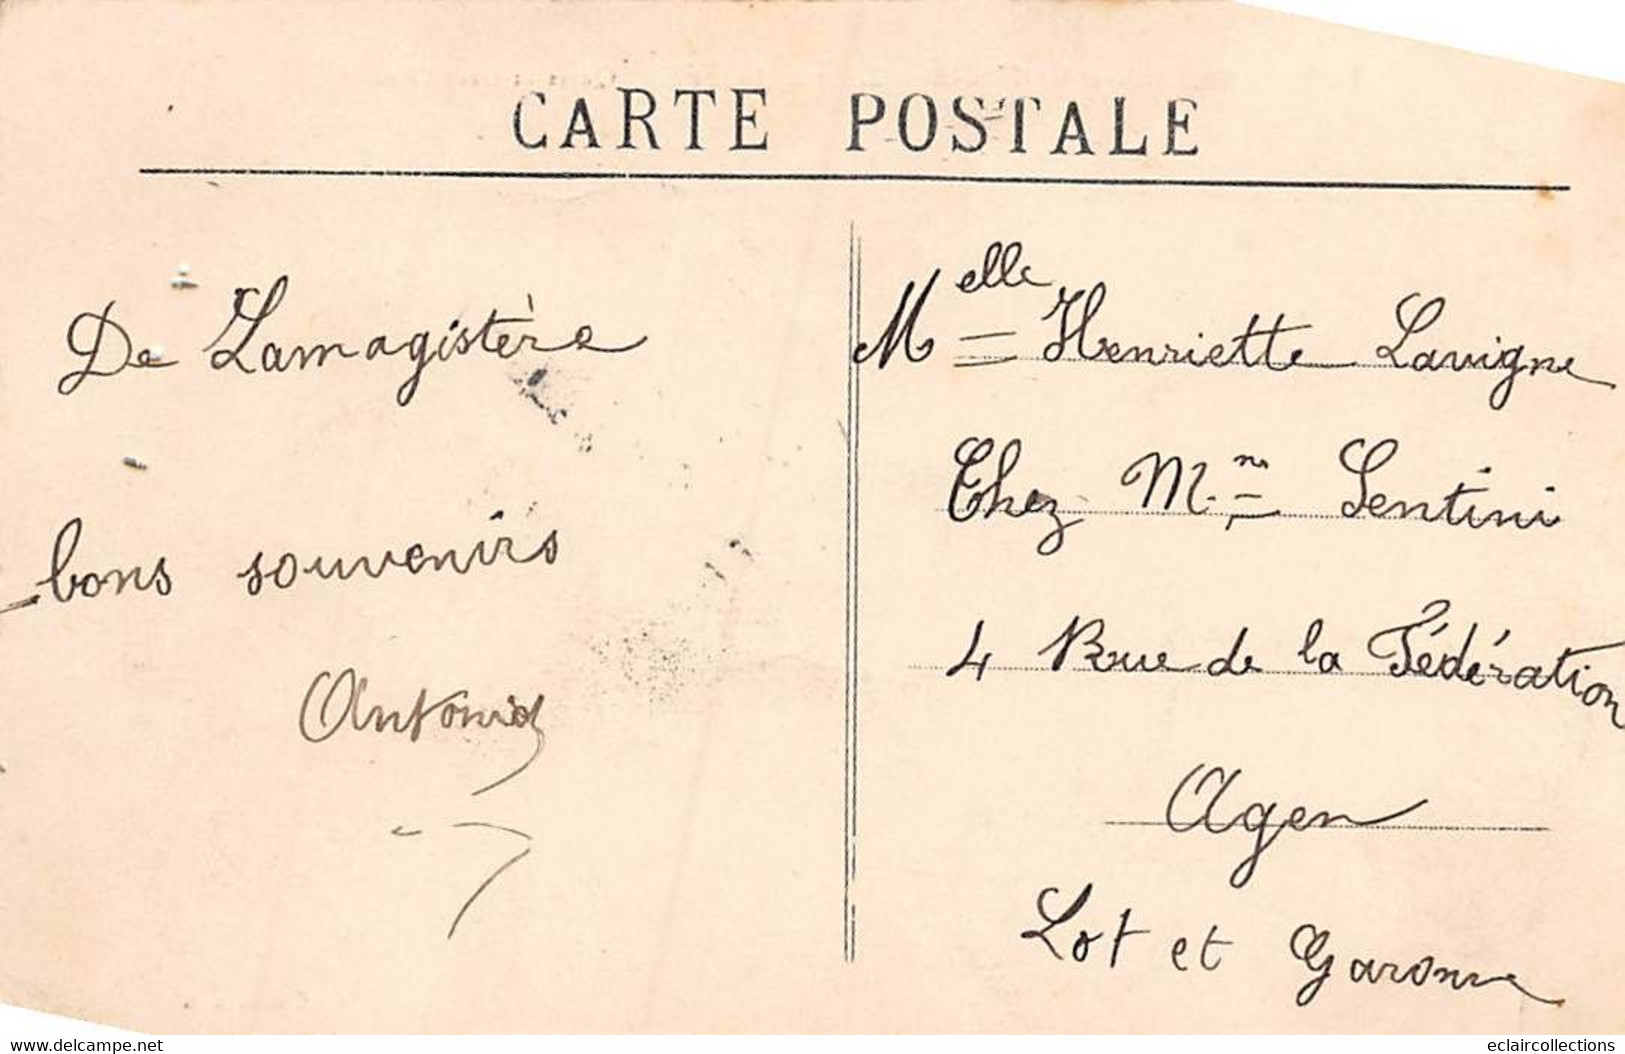 CARTE POSTALE
De Lamagistère
bons souvenirs
Melle Henriette Lavigne
Chez Mn Sentini
4 Rue de la Fédération
Agen
Lot et Garonne
www.delcampe.net
eclaircollections